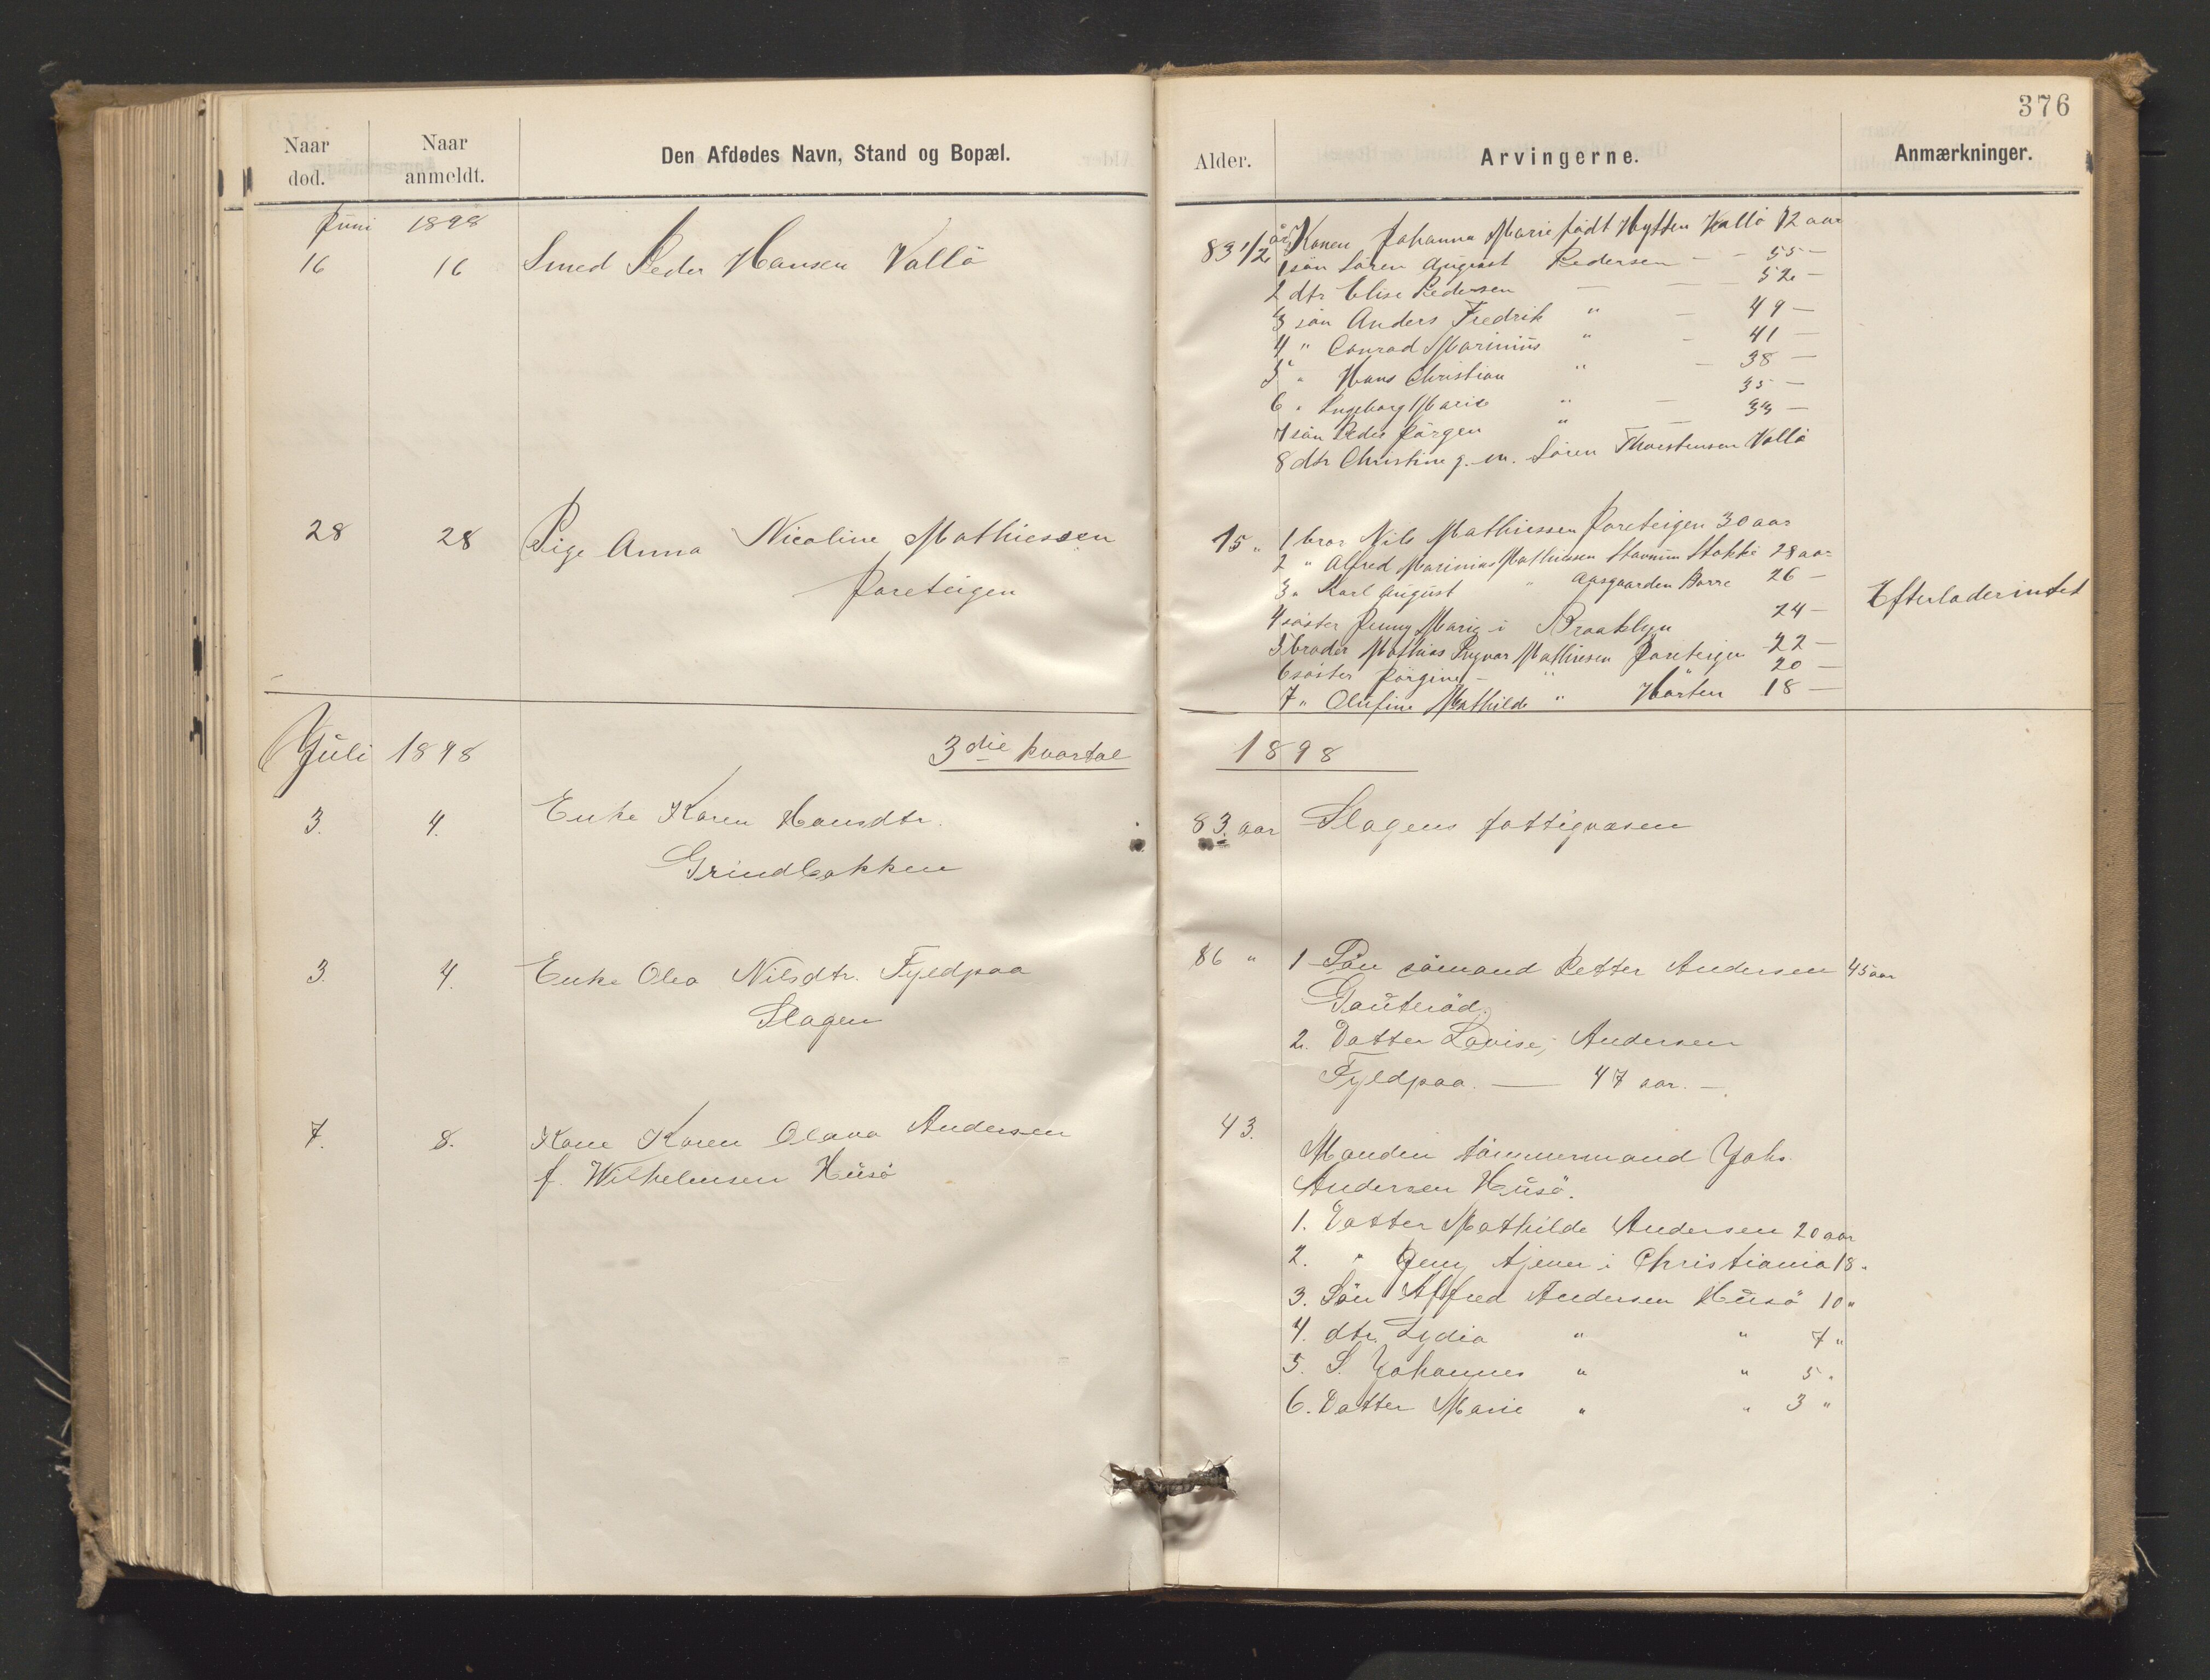 376
Naar død.
Naar anmeldt.
Den Afdødes Navn, Stand og Bopæl.
Alder.
Arvingerne.
Anmærkninger.
Juni 1898
16 16 Smed Peder Hansen Vallö
83 1/2 år Konen Johanna Marie födt Hytten Vallö 72 aar
1 sön Sören August Pedersen - - 55 -
2 dtr Elise Pedersen - - - 52 -
3 sön Anders Fredrik " - 49 -
4 " Conrad Marinius " - 41 -
5 " Hans Christian " - 38 -
6 " Ingeborg Marie " - 35 -
7 sön Peder Jörgen " - 33 -
8 dtr Christine g. m. Sören Thorstensen Vallö
28 28 Pige Anna Nicoline Mathiessen
Joreteigen
15 " 1 bror Nils Mathiessen Joreteigen 30 aar
2 " Alfred Marinius Mathiessen Stavnum Stokke 28 aar
3 " Karl August " Aasgaarden Borre 26 -
4 söster Jenny Marie i Braaklyn 24 -
5 broder Mathias Ingvar Mathiesen Joreteigen 22 -
6 söster Jörgine - " 20 -
7 " Olufine Mathilde " Horten 18 -
Efterlader intet
Juli 1898 3die kvartal 1898
3. 4. Enke Karen Hansdtr.
Grindbakken
83. aar Slagens fattigvæsen
3. 4. Enke Olea Nilsdtr. Fyldpaa
Slagen
86 " 1 Sön sömand Petter Andersen 45 aar
Gauteröd.
2. Datter Lovise, Andersen
Fyldpaa. — 47 aar. -
7. 8. Kone Karen Olava Andersen
f. Wilhelmsen Husö
43.
Manden tömmermand Johs.
Andersen Husö.
1. Datter Mathilde Andersen 20 aar
2. " Jeny tjener i Christiania 18 "
3. Sön Alfred Andersen Husö 10 "
4. dtr. Lydia " " 7 "
5. S. Johannes " " 5 "
6. Datter Marie " " 3 "